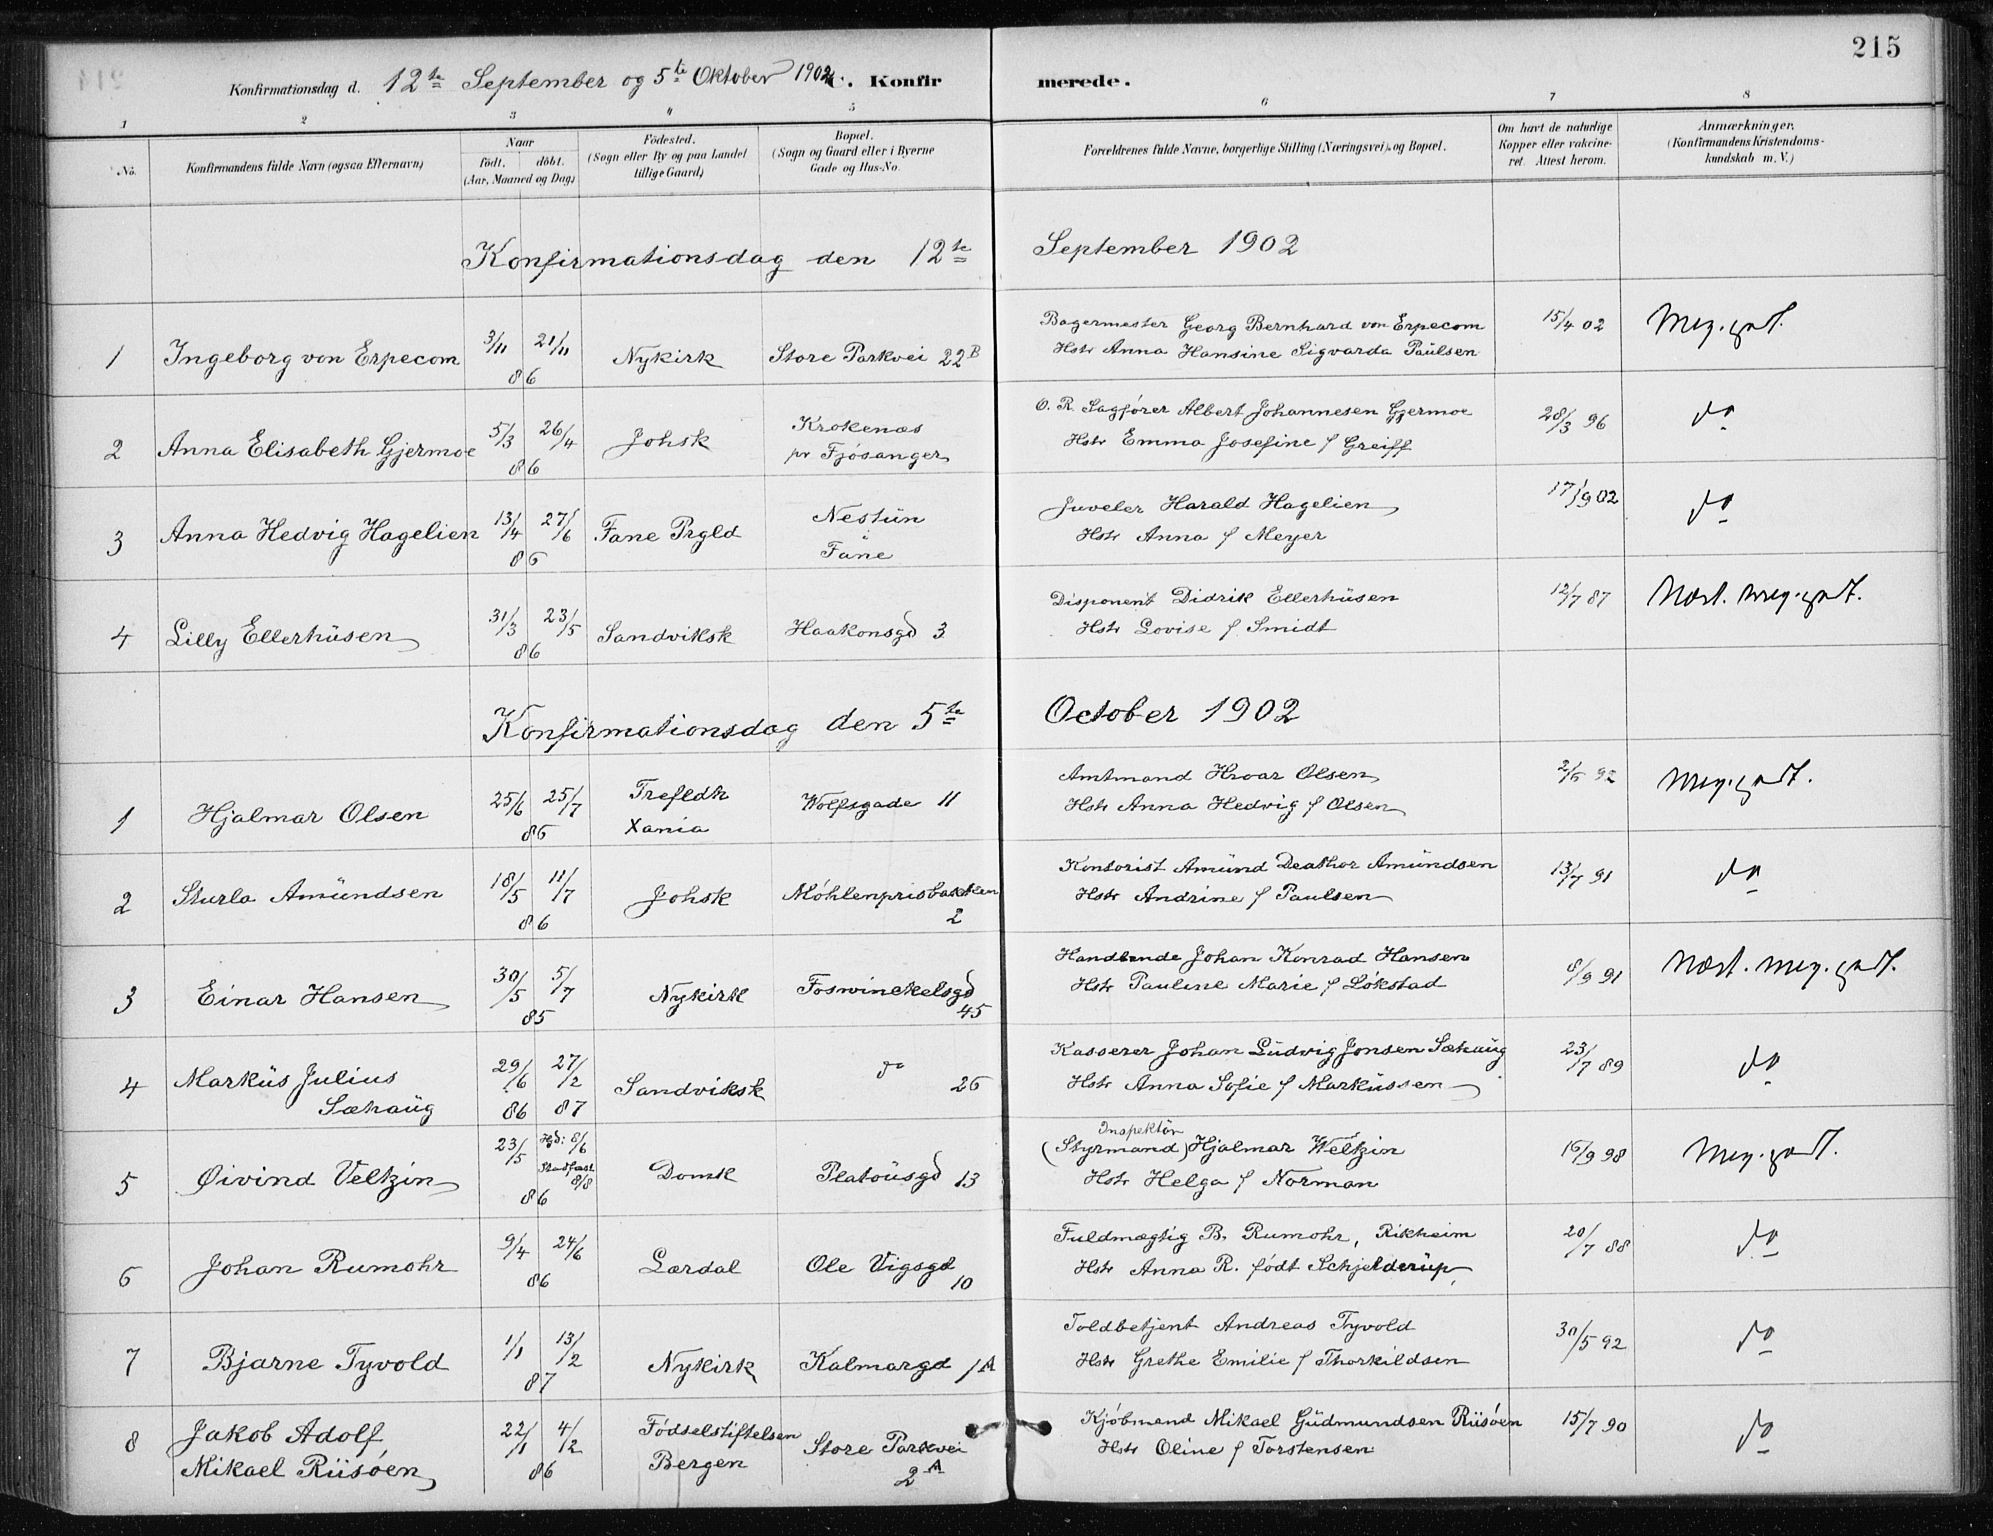 215
Konfirmationsdag d. 12te September og 5te Oktober 1902 C. Konfir merede.
1 2 3 4 5 6 7 8
No. Konfirmandens fulde Navn (ogsaa Efternavn) Naar født. døbt. (Aar, Maaned og Dag) Fødested. (Sogn eller By og paa Landet tillige Gaard) Bopæl. (Sogn og Gaard eller i Byerne Gade og Hus-No. Forældrenes fulde Navne, borgerlige Stilling (Næringsvei), og Bopæl. Om havt de naturlige Kopper eller vakcineret. Attest herom. Anmærkninger. (Konfirmandens Kristendomskundskab m. V.)
Konfirmationsdag den 12te September 1902
1 Ingeborg von Erpecom 3/11 21/11 86 Nykirk Store Parkvei 22B Bagermester Georg Bernhard von Erpecom 15/4 02 Meg. godt.
Hstr Anna Hansine Sigvarda Paulsen
2 Anna Elisabeth Gjermoe 5/3 26/4 86 Johsk Krokenæs pr Fjøsanger O. R. Sagfører Albert Johannesen Gjermoe 28/3 96 do
Hstr Emma Josefine f Greiff
3 Anna Hedvig Hagelien 13/4 27/6 86 Fane Prgld Nestun Fane Juveler Harald Hagelien 17/9 02 do
Hstr Anna f Meyer
4 Lilly Ellerhusen 31/3 23/5 86 Sandviksk Haakonsgd 3 Disponent Didrik Ellerhusen 12/7 87 Næst. meg. godt.
Hstr Lovise f Smidt
Konfirmationsdag den 5te October 1902
1 Hjalmar Olsen 25/6 25/7 86 Trefldk Xania Wolfsgade 11 Amtmand Hroar Olsen 2/5 92 Meg. godt.
Hstr Anna Hedvig f Olsen
2 Sturla Amundsen 18/5 11/7 86 Johsk Møhlenprisbakken 2 Kontorist Amund Deathor Amundsen 13/7 91 do
Hstr Andrine f Paulsen
3 Einar Hansen 30/5 5/7 85 Nykirk Foswinckelsgd 45 Handlende Johan Konrad Hansen 8/9 91 Næst. meg. godt.
Hstr Pauline Marie f Løkstad
4 Markus Julius Sæhaug 29/6 86 27/2 87 Sandviksk do 26 Kasserer Johan Ludvig Jonsen Sæhaug 23/7 89 do
Hstr Anna Sofie f Markussen
5 Øivind Veltzin 23/5 Hjd: 8/6 Stadfæst 8/8 86 Domk Platousgd 13 (Styrmand) Inspektør Hjalmar Weltzin 16/9 98 Meg. godt.
Hstr Helga f Norman
6 Johan Rumohr 9/4 24/6 86 Lærdal Ole Vigsgd 10 Fuldmægtig B. Rumohr, Rikheim 20/7 88 do
Hstr Anna R. født Schjelderup
7 Bjarne Tyvold 1/1 13/2 87 Nykirk Kalmargd 1A Toldbetjent Andreas Tyvold 30/5 92 do
Hstr Grethe Emilie f Thorkildsen
8 Jakob Adolf Mikael Riisøen 22/1 4/2 86 Fødselstiftelsen Bergen Store Parkvei 2A Kjøbmand Mikael Gudmundsen Riisøen 15/7 90 do
Hstr Oline f Torstensen